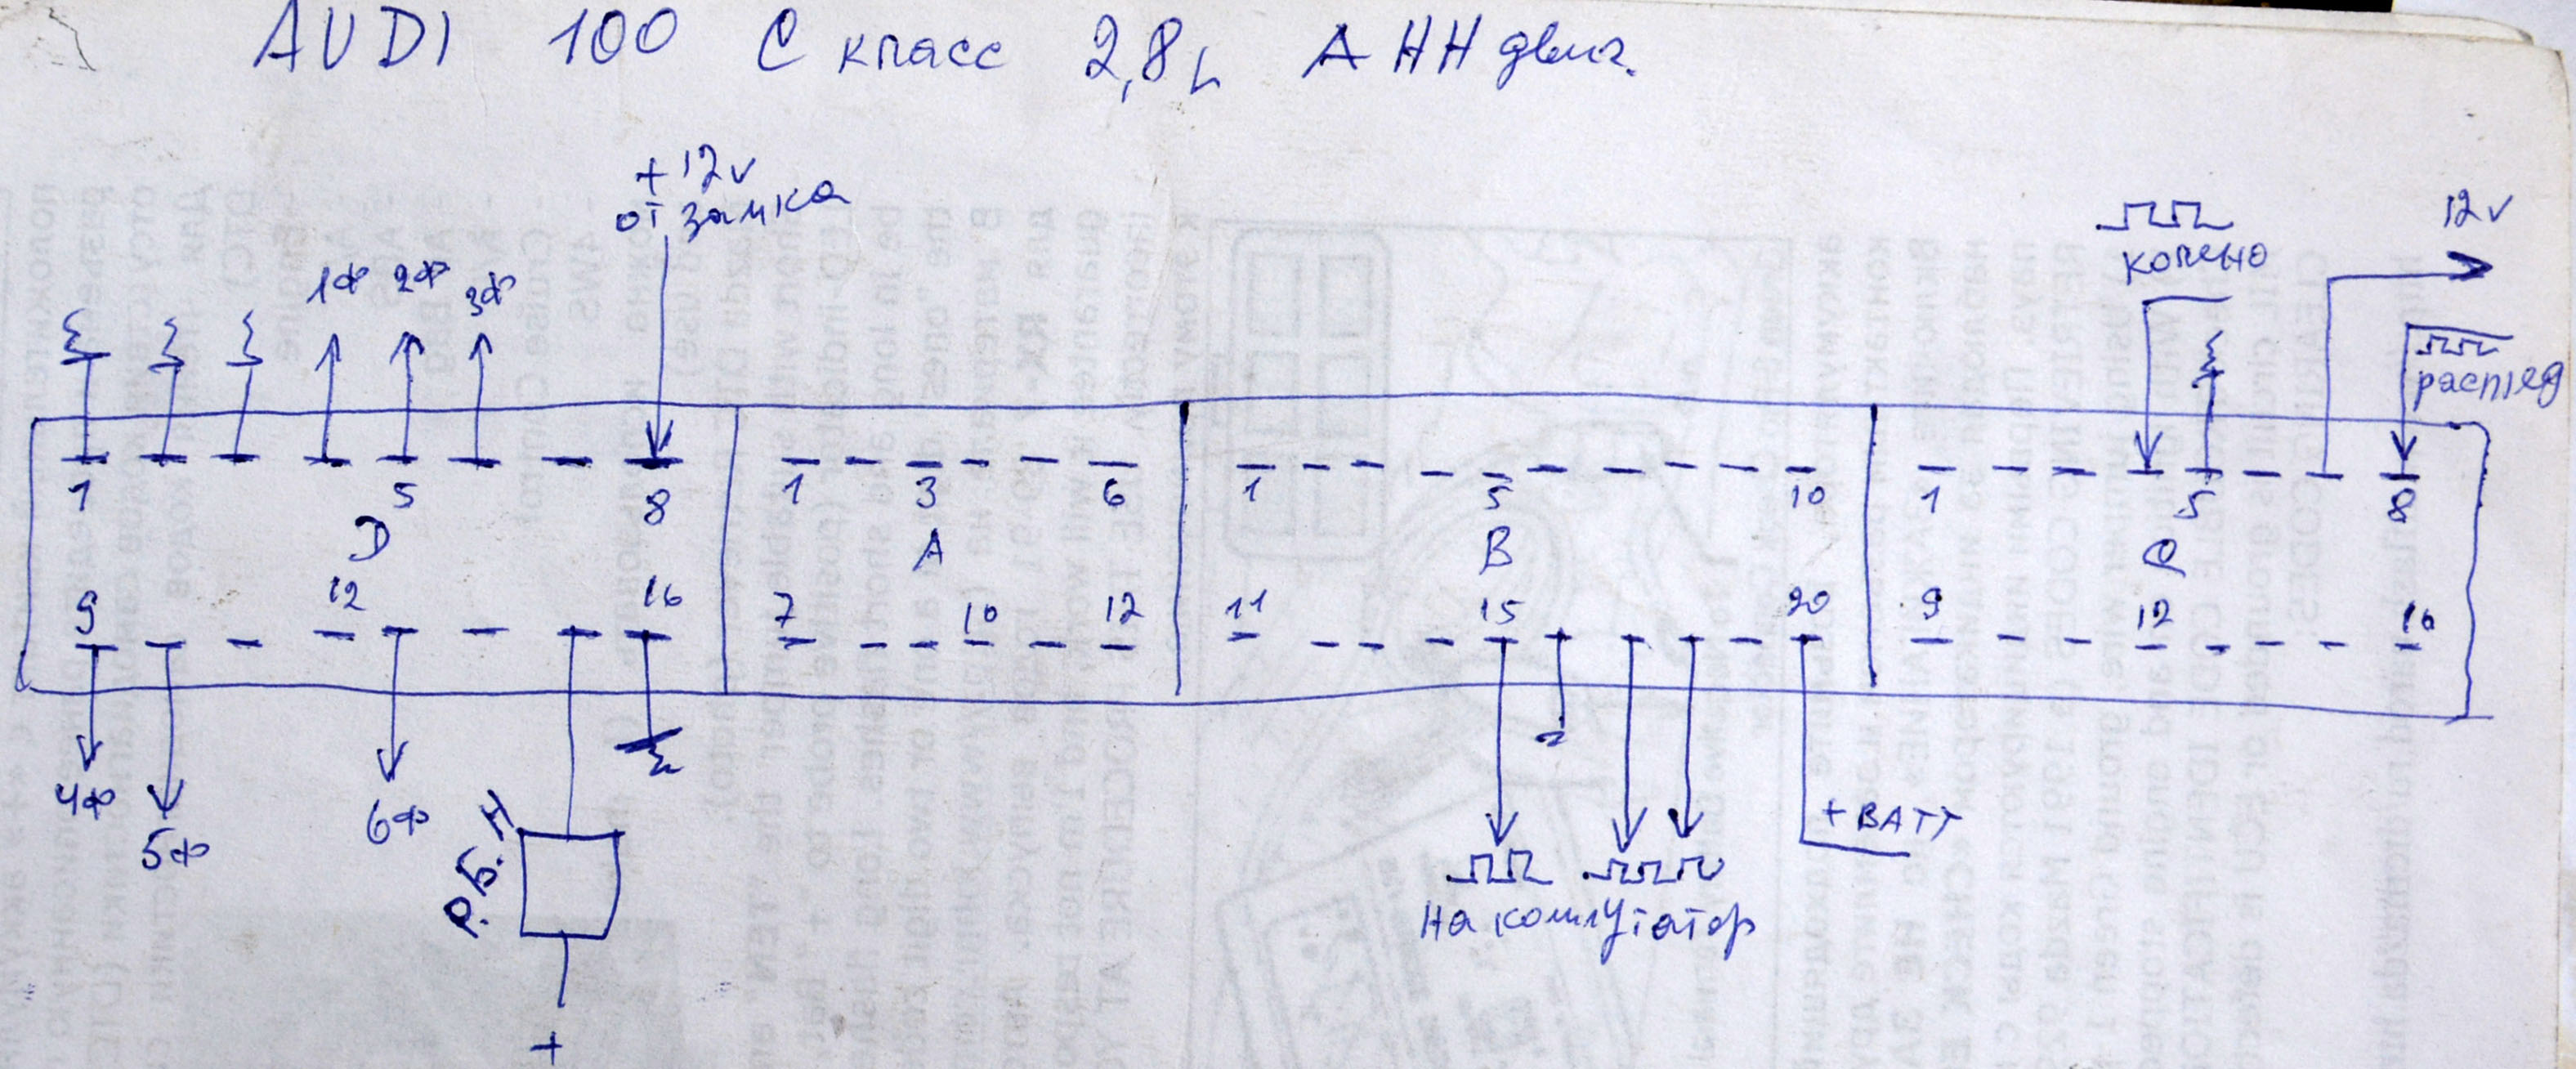 AUDI 100 С класс 2,8L АНН двиг.
+12v
от замка
1ф 2ф 3ф
колено
12v
распред
1 5 8 1 3 6 1 5 10 1 5 8
D A B C
9 12 16 7 10 12 11 15 20 9 12 16
4ф
5ф
6ф
Р.Б.Н
+
+BATT
На коммутатор